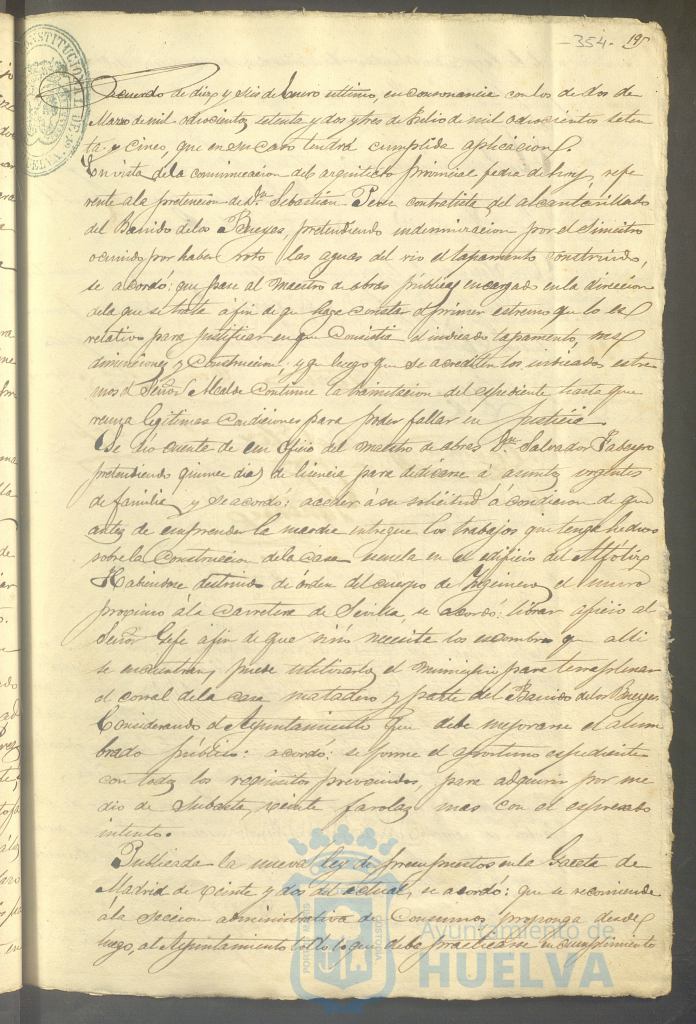 -354- 195
CONSTITUCIONAL DE HUELVA
acuerdo de diez y seis de Enero ultimo, en consonancia con los de dos de
Marzo de mil ochocientos setenta y dos y tres de Julio de mil ochocientos seten
ta y cinco, que en su caso tendrá cumplida aplicacion.
En vista de la comunicacion del arquitecto provincial fecha de hoy, refe
rente a la pretencion de Dn Sebastian contratista del alcantarillado
del Barrido de los Bueyes, pretendiendo indemnizacion por el siniestro
ocurrido por haber roto las aguas del rio el tapamento construido,
se acordó: que pase al Maestro de obras públicas encargado en la direccion
de la que se trata á fin de que haga constar el primer estremo que lo es
relativo para justificar en que consistia el indicado tapamento, sus
dimenciones y construccion; y que luego que se acrediten los indicados estre
mos el Señor Alcalde continue la tramitacion del espediente hasta que
reuna legitimas condiciones para poder fallar en justicia.
Se dio cuenta de un oficio del maestro de obras Dn Salvador
pretendiendo quince dias de licencia para dedicarse á asuntos urgentes
de familia y se acordó: acceder á su solicitud á condicion de que
antes de emprender la marcha entregue los trabajos que tenga hechos
sobre la construccion de la casa escuela en el edificio del
Habiendose destruido de orden del cuerpo de Ingenieros el muro
procsimo á la carretera de Sevilla, se acordó: librar oficio al
Señor Gefe á fin de que si no necesita los escombros que alli
se encuentran, pueda utilizarlos el municipio para terraplenar
el corral de la casa matadero y parte del Barrido de los Bueyes
Considerando el Ayuntamiento que debe mejorarse el alum
brado público: acordó: se forme el oportuno espediente
con todos los requisitos prevenidos, para adquirir por me
dio de subasta, veinte farolas mas con el espresado
intento.
Publicada la nueva ley de presupuestos en la Gaceta de
Madrid de veinte y dos del actual, se acordó: que se recomiende
á la seccion administrativa de Consumos proponga desde
luego, al Ayuntamiento todo lo que deba practicarse en cumplimiento
PORTUS MARIS
CUSTODIA
Ayuntamiento de
HUELVA